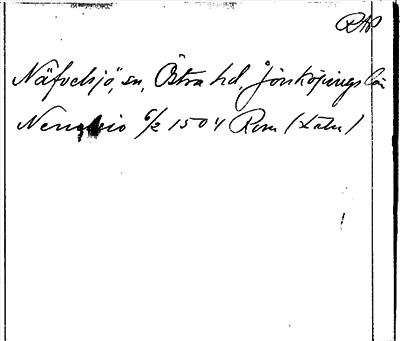 RAP
Näfvelsjö sn, Östra hd, Jönköpings län
6/2 1504 Rom (Latin)